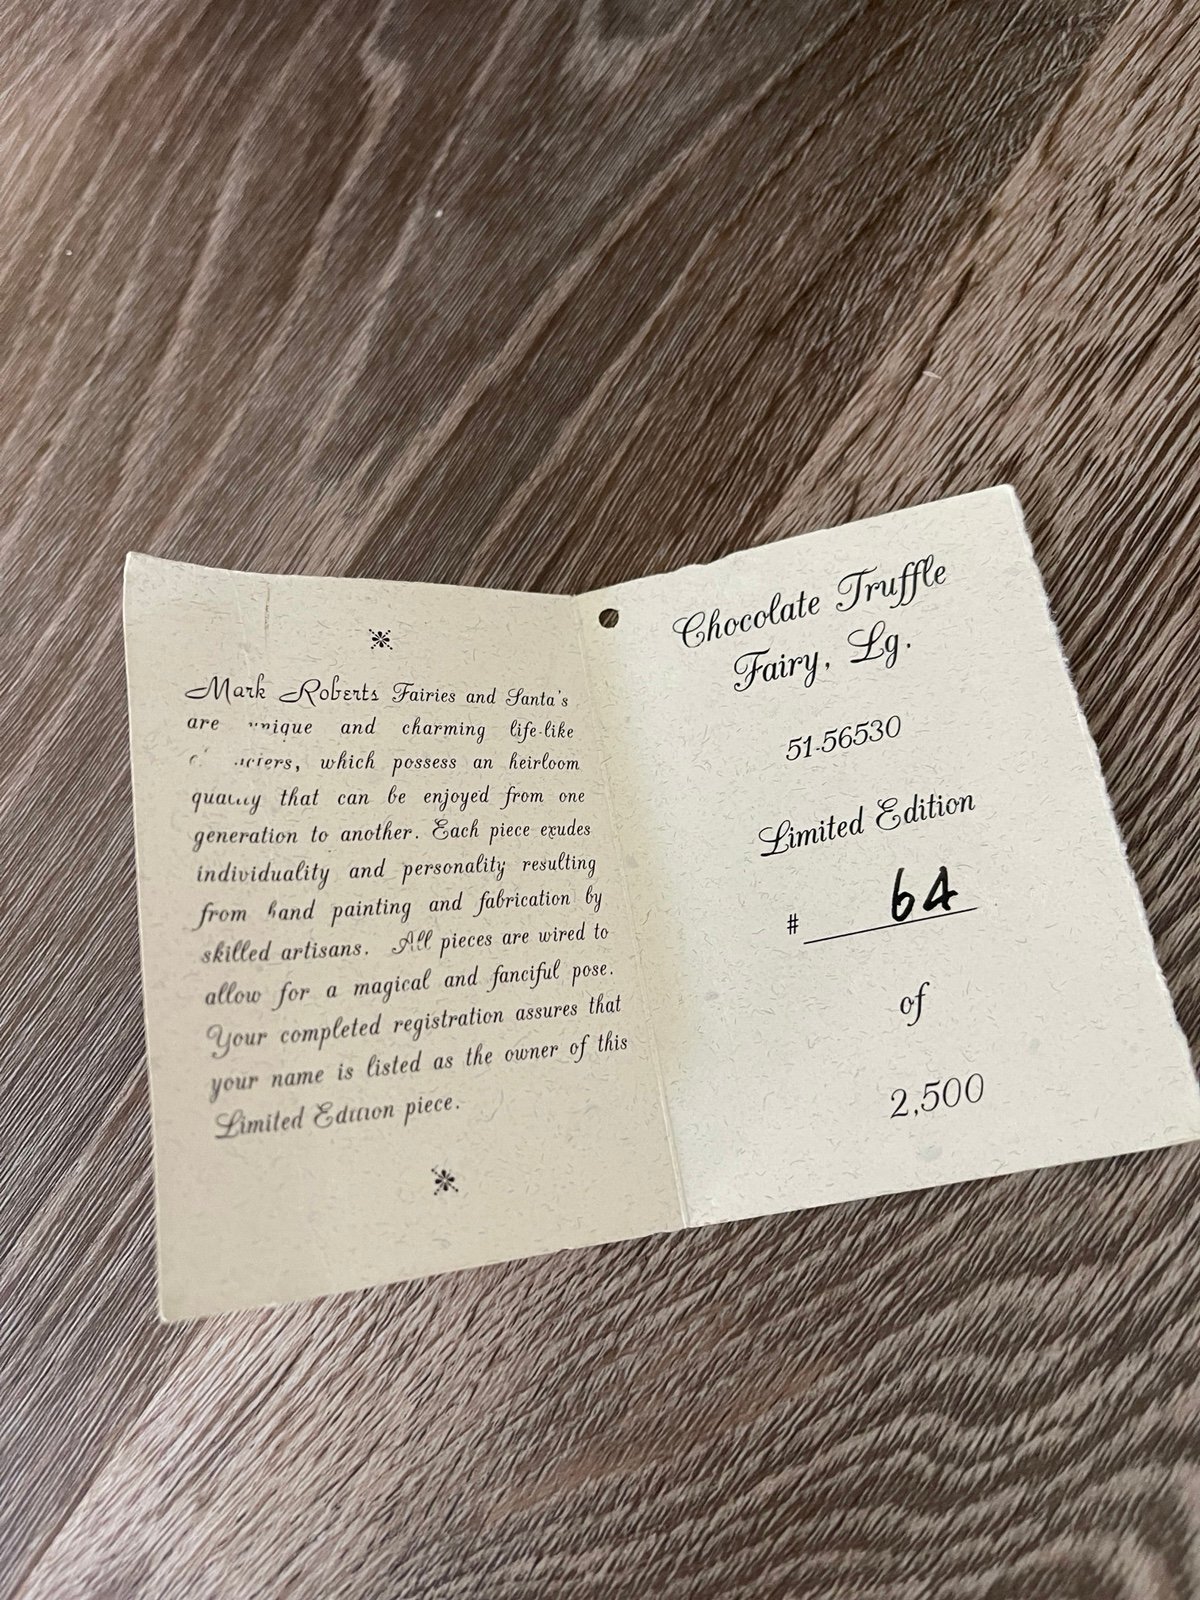 Mark Roberts Fairies and Santa's
are unique and charming life-like
which possess an heirloom
quality that can be enjoyed from one
generation to another. Each piece exudes
individuality and personality resulting
from hand painting and fabrication by
skilled artisans. All pieces are wired to
allow for a magical and fanciful pose.
Your completed registration assures that
your name is listed as the owner of this
Limited Edition piece.
Chocolate Truffle
Fairy, Lg.
51-56530
Limited Edition
# 64
of
2,500